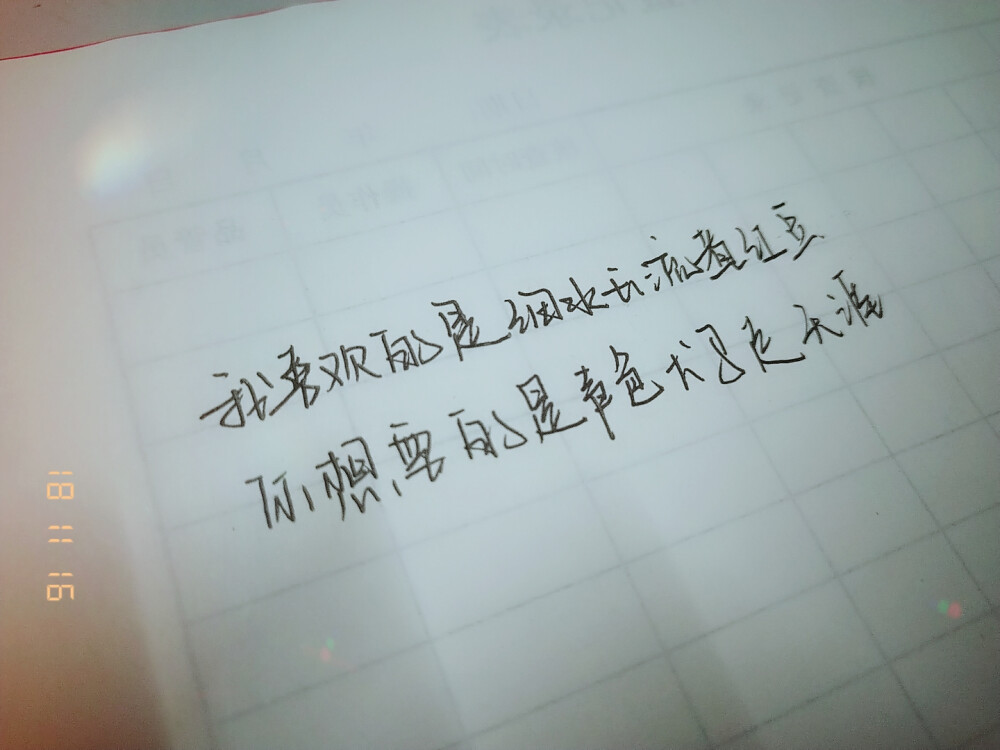 我喜欢的是细水长流煮红豆
你想要的是声色犬马走天涯
18 11 16